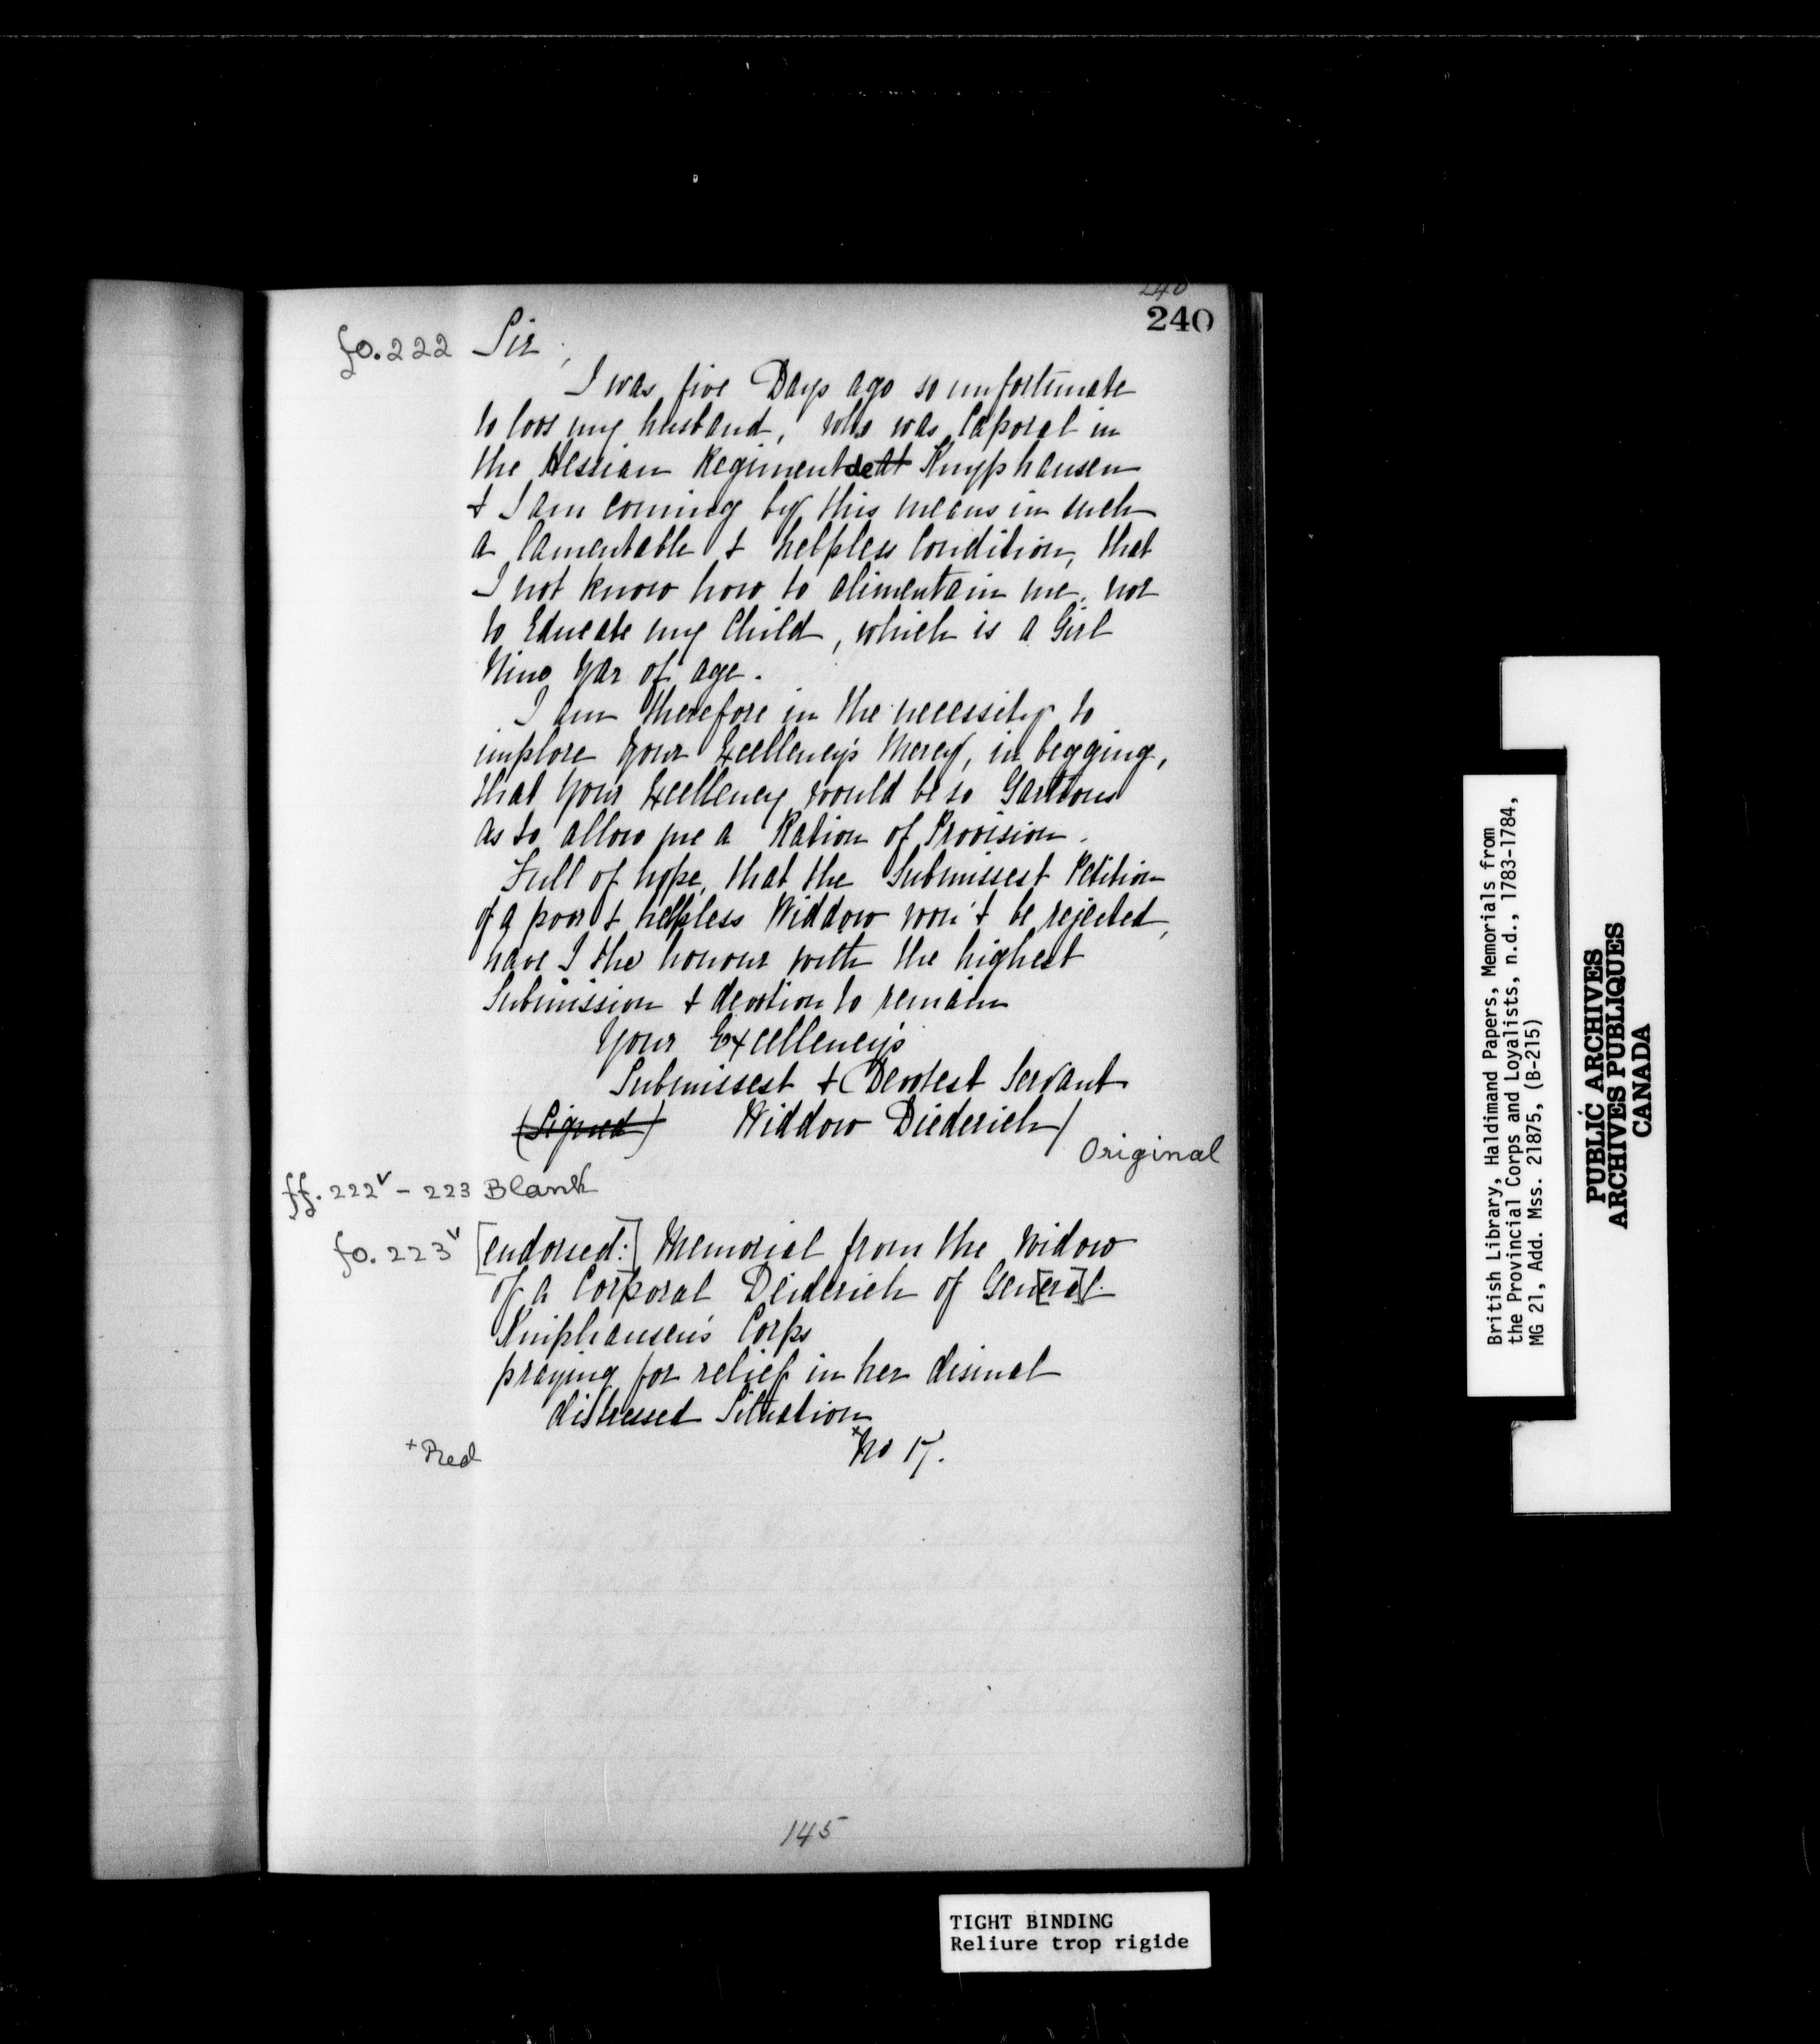 240
240
fo. 222 Sir,
I was five Days ago so unfortunate
to loos my husband, who was Caporal in
the Hessian Regiment de Knyphausen
& I am coming by this means in such
a lamentable & helpless Condition, that
I not know how to alimentain me, nor
to Educate my Child, which is a Girl
Nine Yar of age.
I am therefore in the necessity to
implore Your Excellency's Mercy, in begging,
that Your Excellency would be so
as to allow me a Ration of Provision.
Full of hope, that the Submissest Petition
of a poor & helpless Widdow won't be rejected,
have I the honour with the highest
Submission & devotion to remain
Your Excellency's
Submissest & Devotest Servant
(Signed) Widdow Diederich/
Original
ff. 222v - 223 Blank
fo. 223v [endorsed:] Memorial from the Widow
of a Corporal Deiderich of Gen[era]l.
Kniphausen's Corps
praying for relief in her dismal
distressed Situation
+Red +No 17.
145
TIGHT BINDING
Reliure trop rigide
British Library, Haldimand Papers, Memorials from
the Provincial Corps and Loyalists, n.d., 1783-1784,
MG 21, Add. Mss. 21875, (B-215)
PUBLIC ARCHIVES
ARCHIVES PUBLIQUES
CANADA